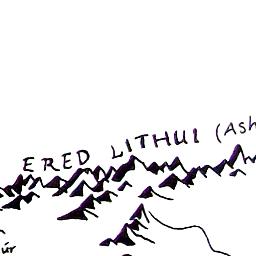 ERED LITHUI (Ash
úr